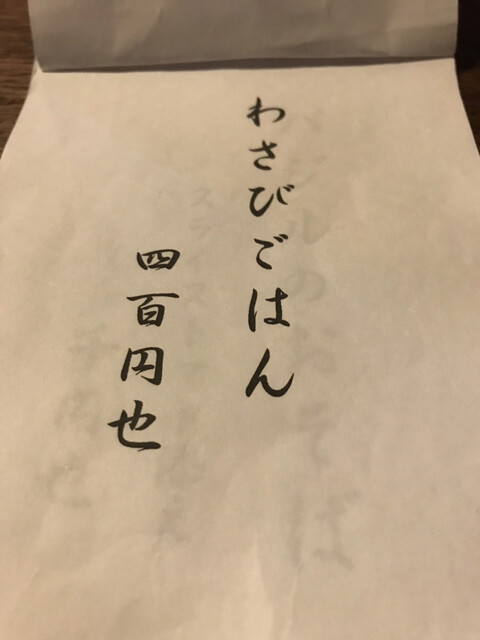 わさびごはん
四百円也